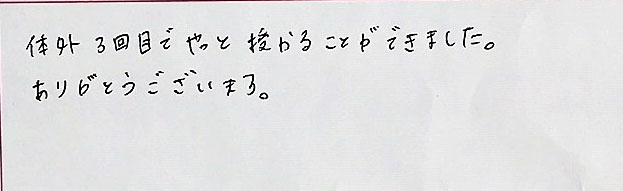 体外3回目でやっと授かることができました。
ありがとうございます。